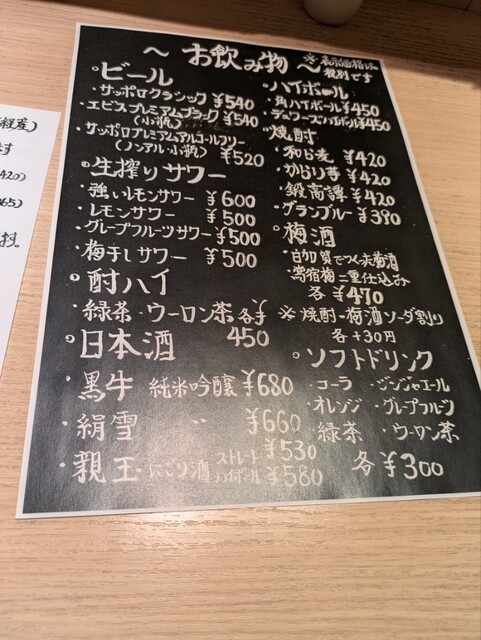 ～ お飲み物 ～ ※表示価格は
税別です
°ビール
・サッポロクラシック ¥540
・エビスプレミアムブラック ¥540
(小瓶)
・サッポロプレミアムアルコールフリー
(ノンアル・小瓶) ¥520
°生搾りサワー
・強いレモンサワー ¥600
・レモンサワー ¥500
・グレープフルーツサワー ¥500
・梅干しサワー ¥500
°酎ハイ
・緑茶・ウーロン茶 各¥
450
°日本酒
・黒牛 純米吟醸 ¥680
・絹雪 〃 ¥660
・親玉 にごり酒 ストレート ¥530
ハイボール ¥580
°ハイボール
・角ハイボール ¥450
・デュワーズハイボール ¥450
°焼酎
・和ら麦 ¥420
・からり芋 ¥420
・鍛高譚 ¥420
・グランブルー ¥390
°梅酒
・鶯宿梅二重仕込み
各 ¥470
※焼酎・梅酒ソーダ割り
各 +30円
°ソフトドリンク
・コーラ ・ジンジャエール
・オレンジ ・グレープフルーツ
・緑茶 ・ウーロン茶
各 ¥300
420)